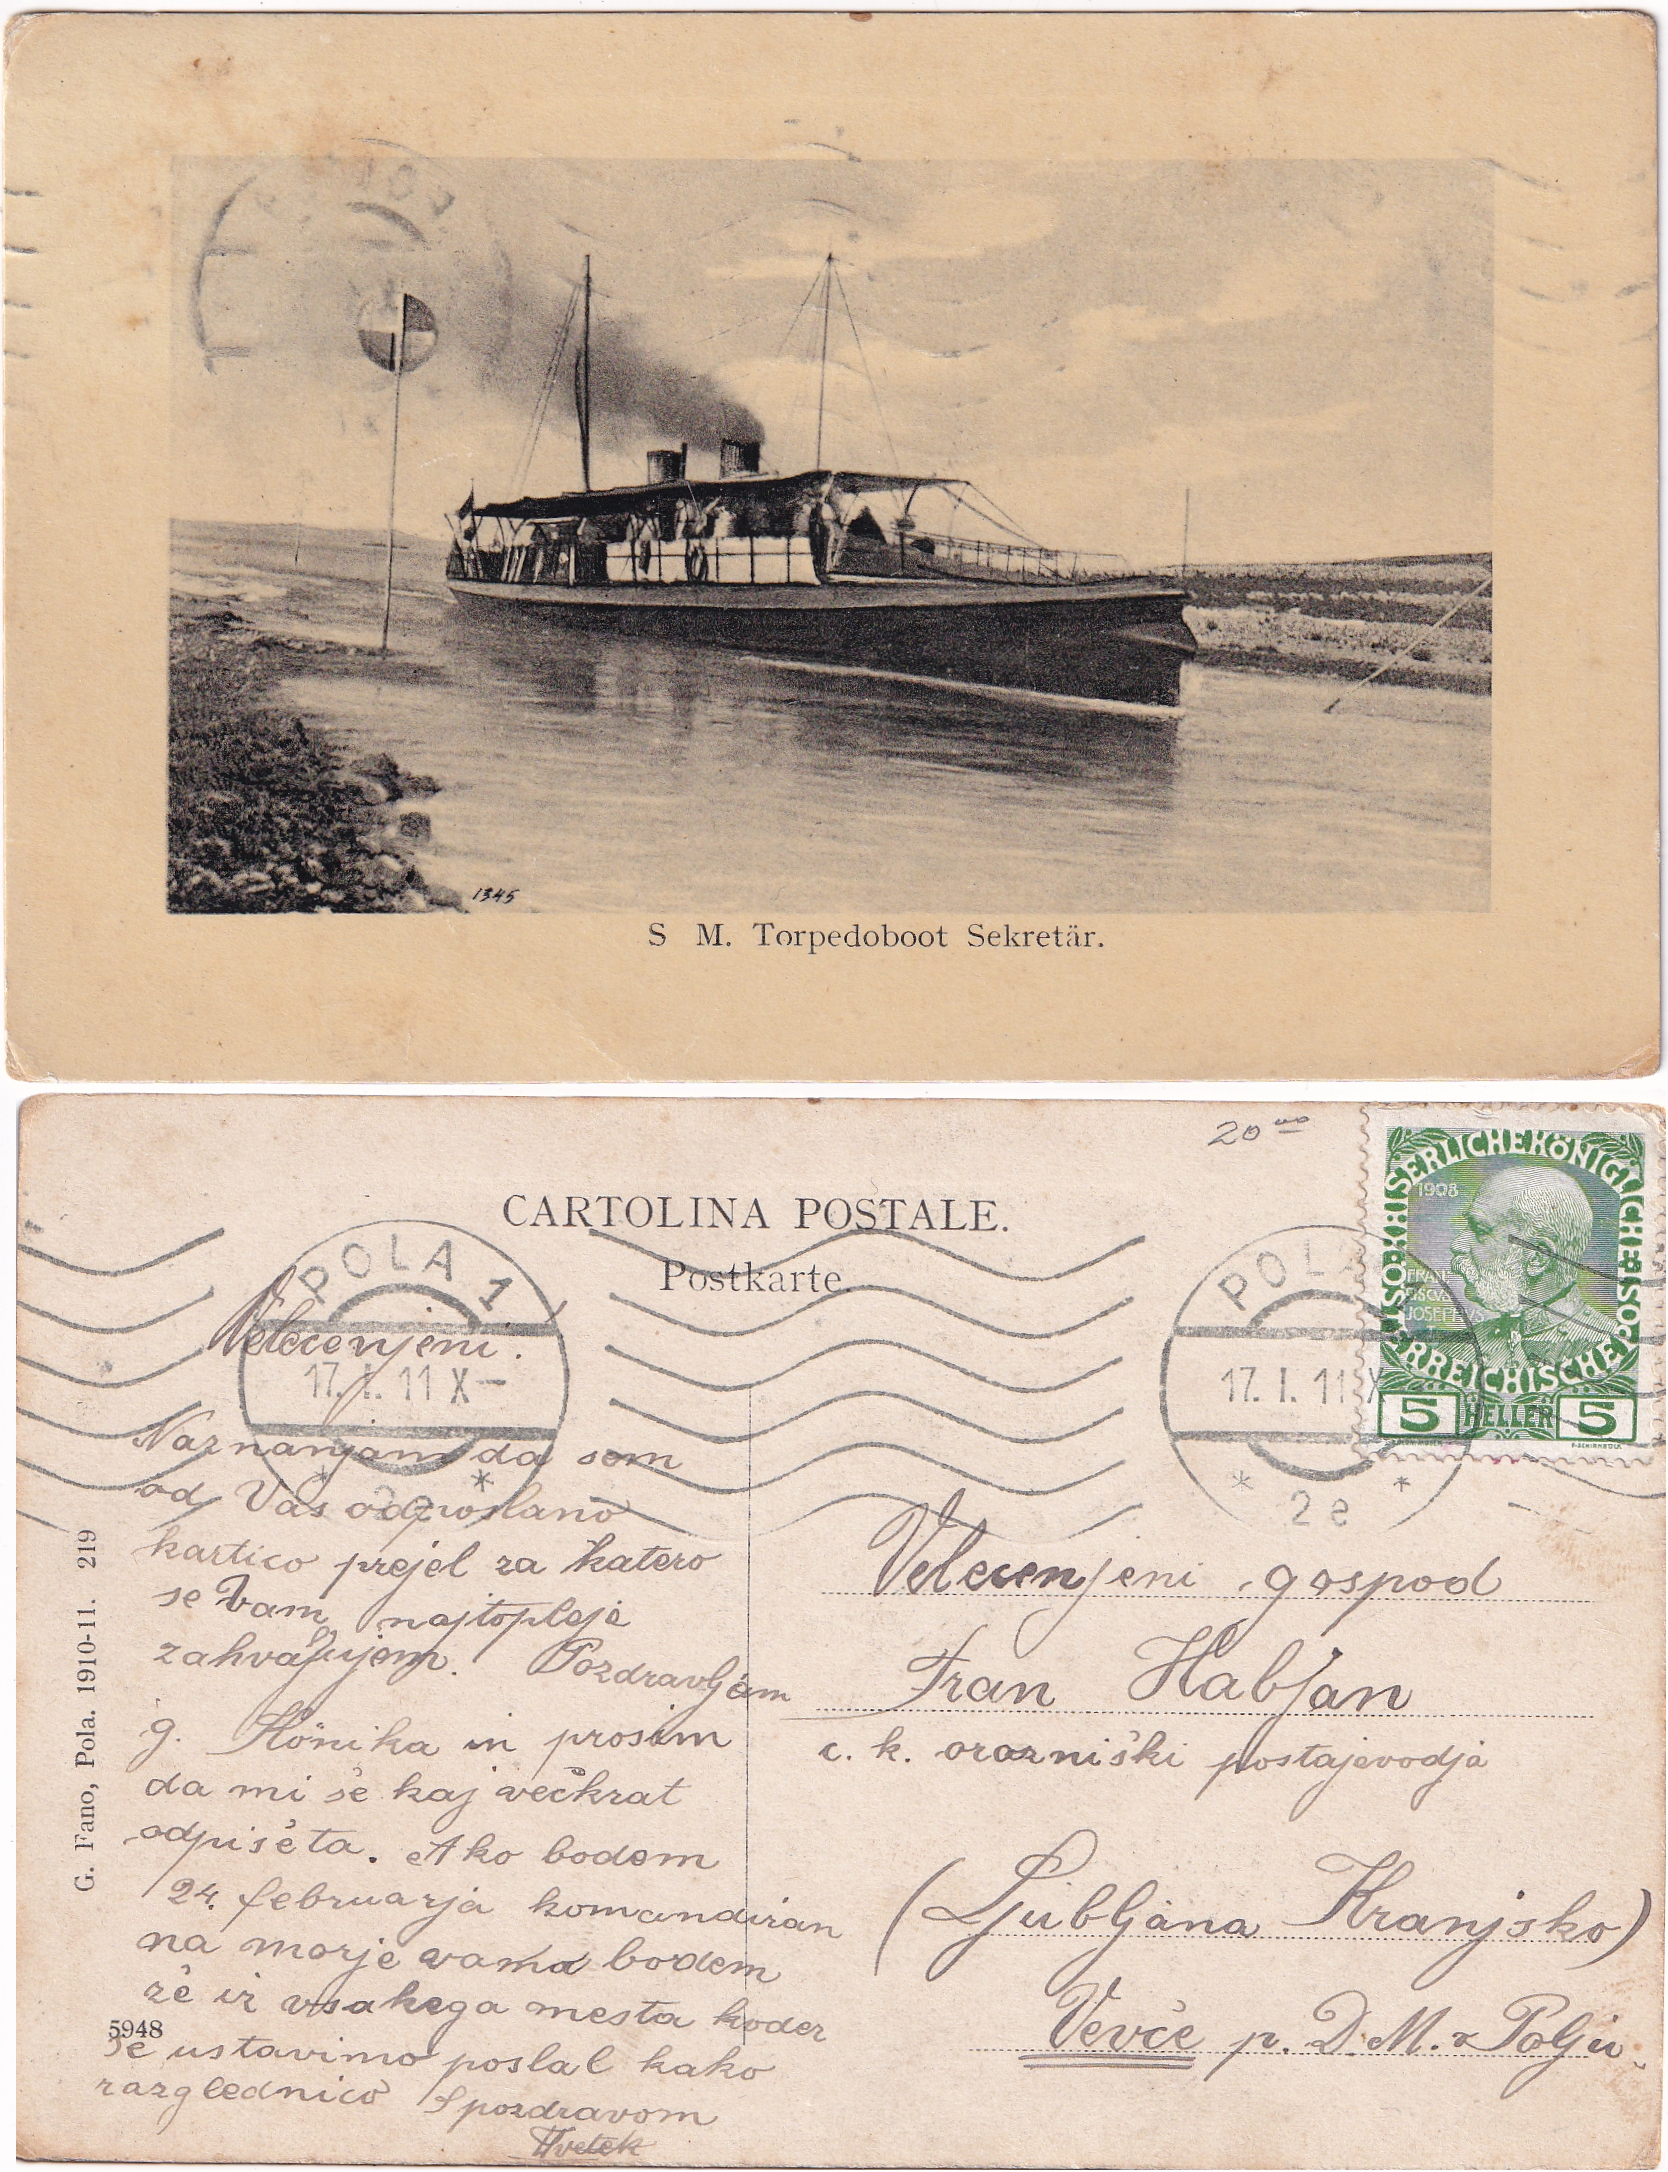 1345
S M. Torpedoboot Sekretär.
20
CARTOLINA POSTALE.
Postkarte.
POLA 1
17. I. 11 X—
* 2e *
POLA
17. I. 11 X
* 2e *
KAISERLICHEKÖNIGLICHE POST
ÖSTERREICHISCHE
1908
FRAN-
CISCVS
JOSEPHVS
5 HELLER 5
Velecenjeni.
Naznanjam da sem
od Vas odposlano
kartico prejel za katero
se Vam najtopleje
zahvaljujem. Pozdravljam
g. Hönika in prosim
da mi še kaj večkrat
odpišeta. Ako bodem
24. februarja komandiran
na morje vama bodem
že iz vsakega mesta koder
se ustavimo poslal kako
razglednico S pozdravom
Velecenjeni gospod
Fran Habjan
c. k. orožniški postajevodja
(Ljubljana Kranjsko)
Vevče p. D. M. v Polju.
G. Fano, Pola. 1910-11. 219
5948